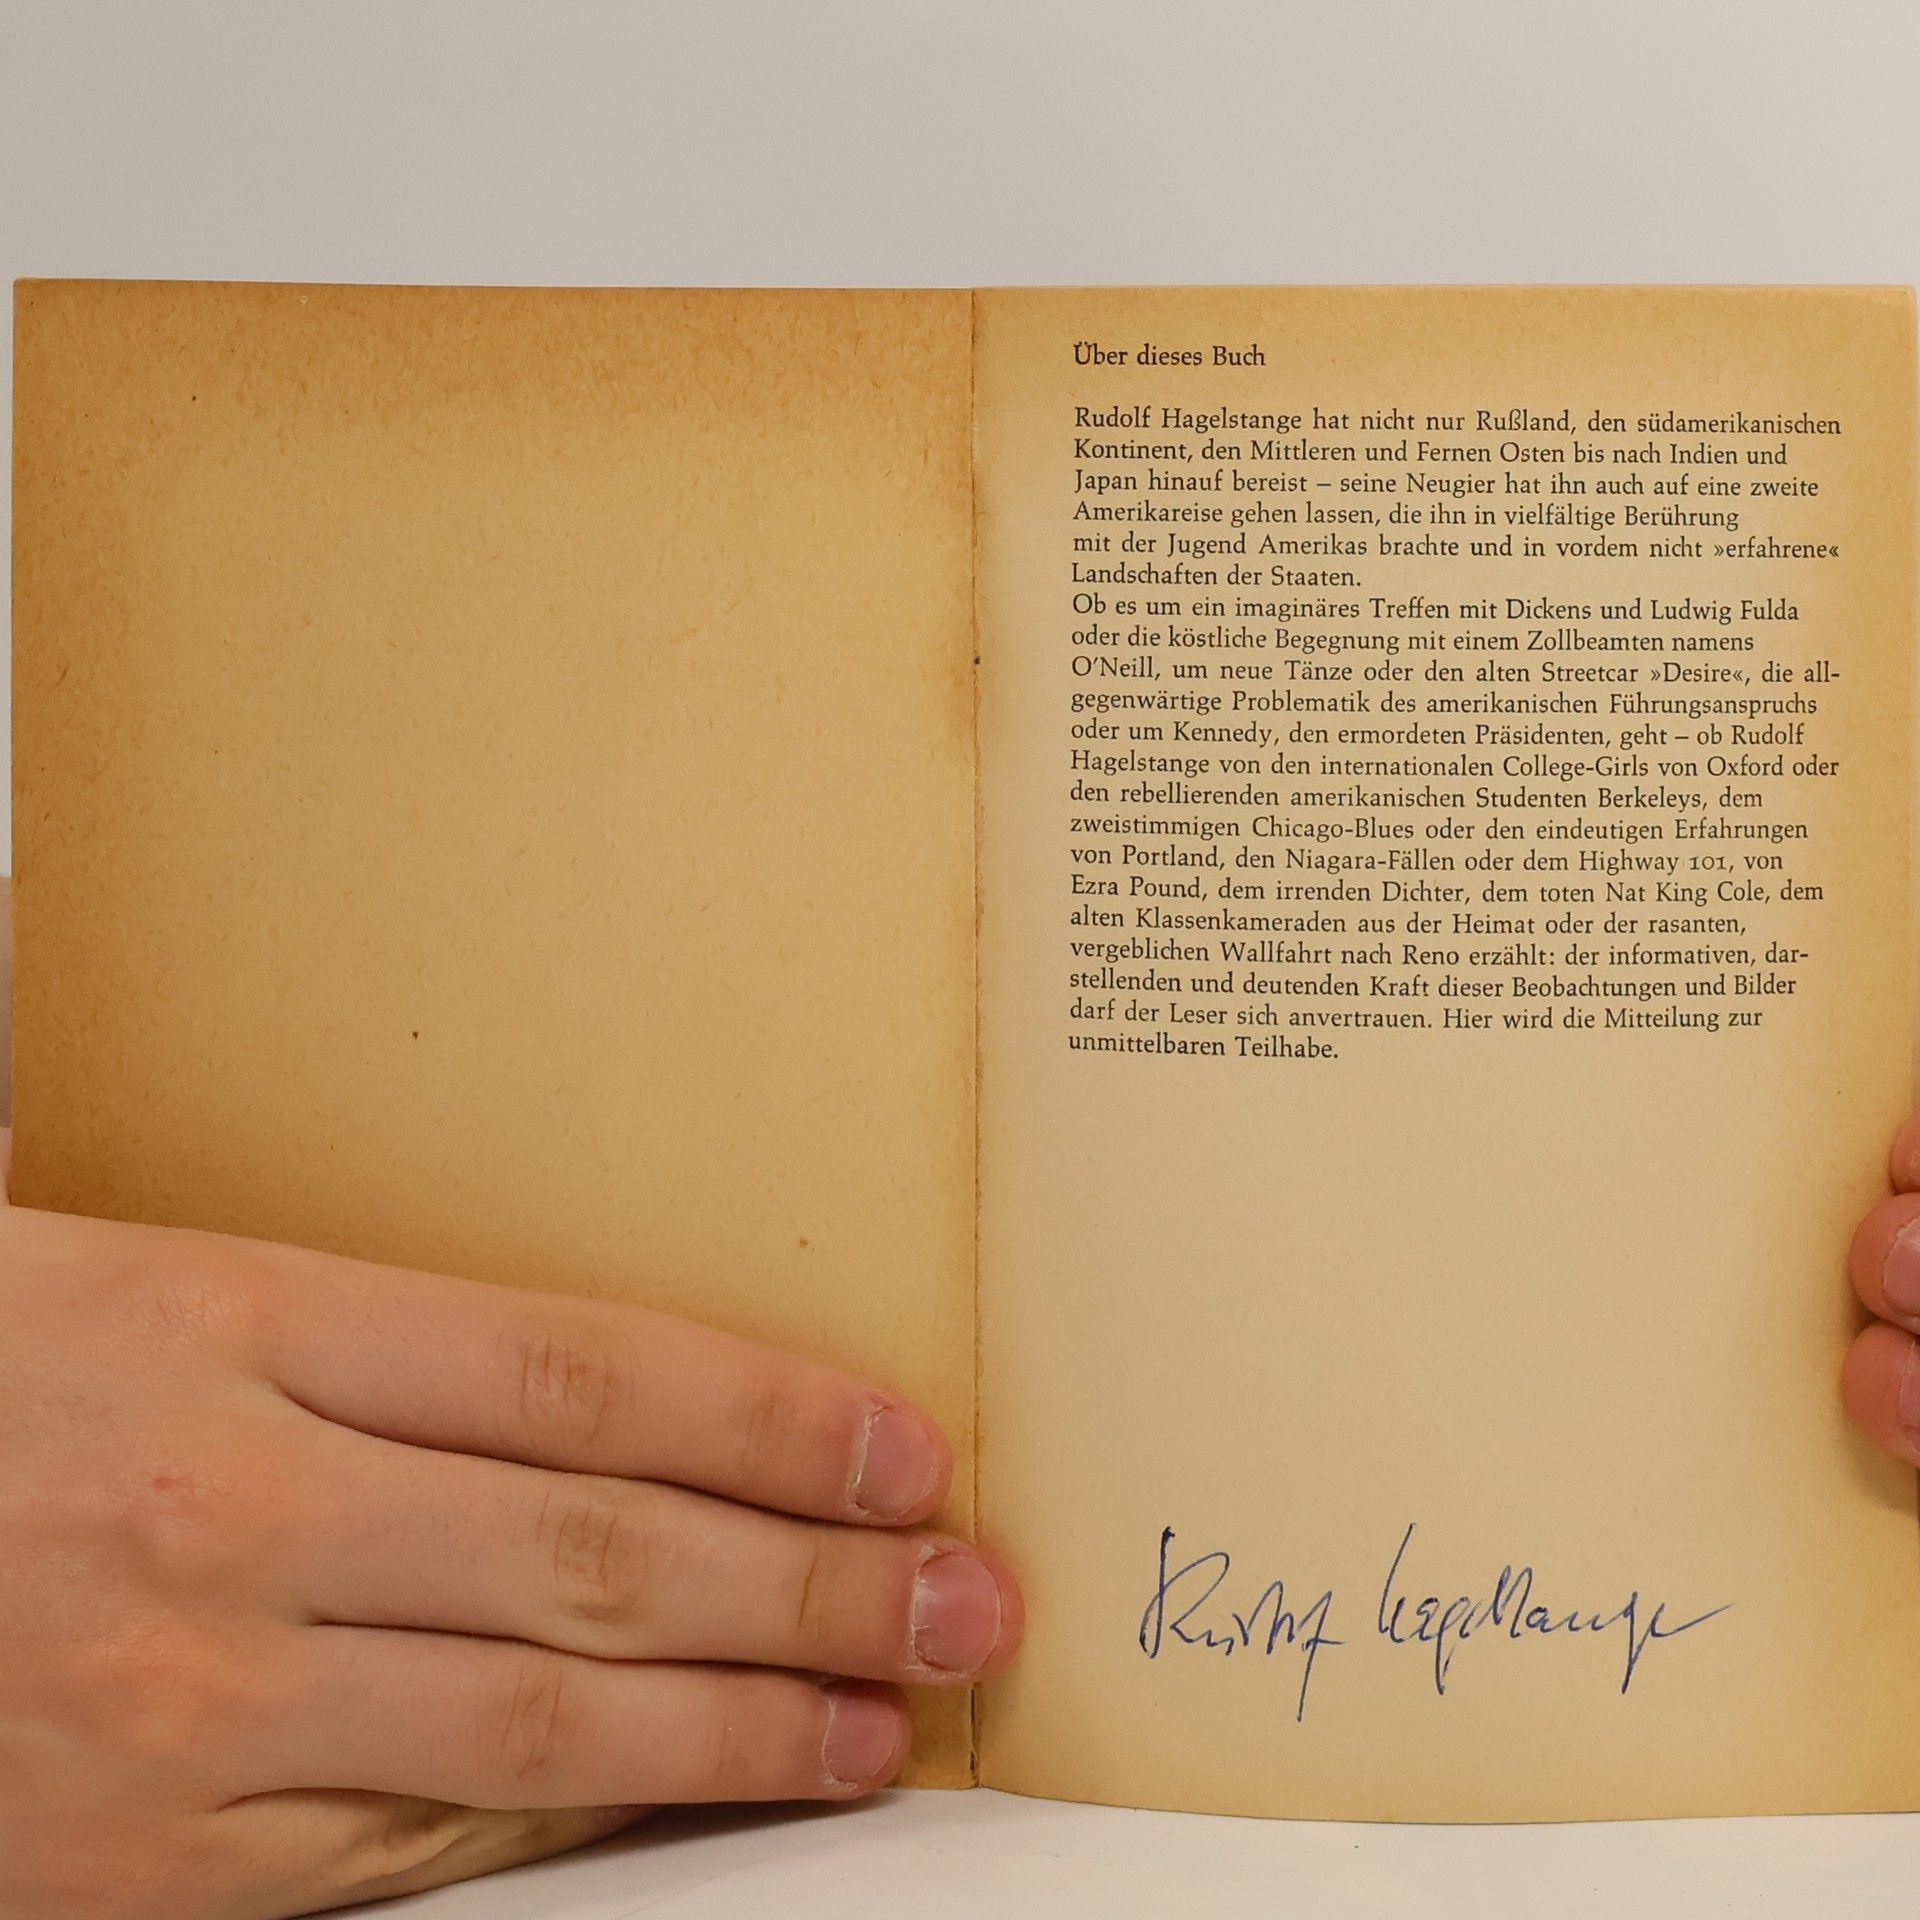 Über dieses Buch
Rudolf Hagelstange hat nicht nur Rußland, den südamerikanischen
Kontinent, den Mittleren und Fernen Osten bis nach Indien und
Japan hinauf bereist – seine Neugier hat ihn auch auf eine zweite
Amerikareise gehen lassen, die ihn in vielfältige Berührung
mit der Jugend Amerikas brachte und in vordem nicht »erfahrene«
Landschaften der Staaten.
Ob es um ein imaginäres Treffen mit Dickens und Ludwig Fulda
oder die köstliche Begegnung mit einem Zollbeamten namens
O'Neill, um neue Tänze oder den alten Streetcar »Desire«, die all-
gegenwärtige Problematik des amerikanischen Führungsanspruchs
oder um Kennedy, den ermordeten Präsidenten, geht – ob Rudolf
Hagelstange von den internationalen College-Girls von Oxford oder
den rebellierenden amerikanischen Studenten Berkeleys, dem
zweistimmigen Chicago-Blues oder den eindeutigen Erfahrungen
von Portland, den Niagara-Fällen oder dem Highway 101, von
Ezra Pound, dem irrenden Dichter, dem toten Nat King Cole, dem
alten Klassenkameraden aus der Heimat oder der rasanten,
vergeblichen Wallfahrt nach Reno erzählt: der informativen, dar-
stellenden und deutenden Kraft dieser Beobachtungen und Bilder
darf der Leser sich anvertrauen. Hier wird die Mitteilung zur
unmittelbaren Teilhabe.
Rudolf Hagelstange